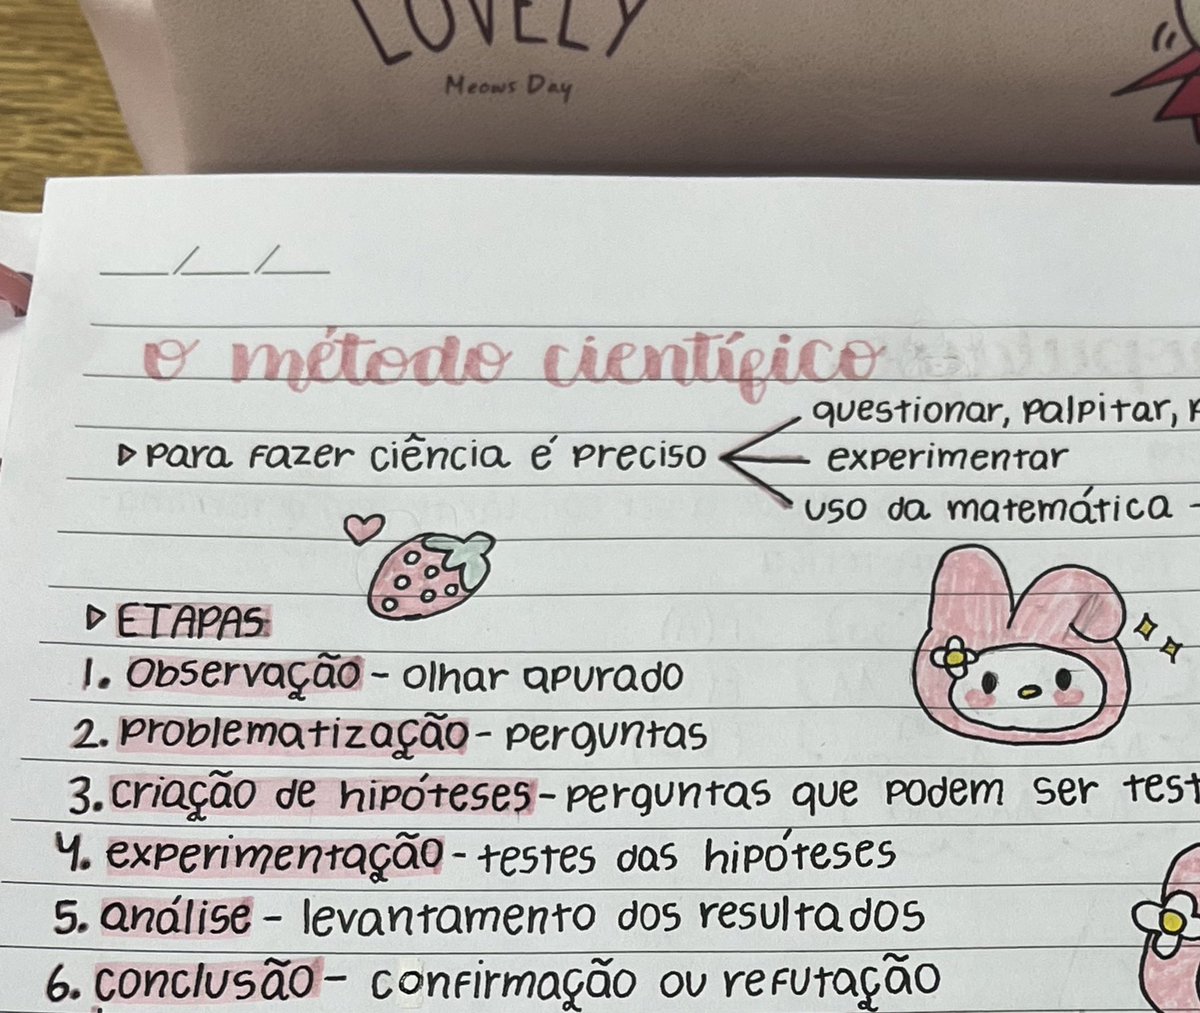 LOVELY
Meows Day
o método científico
questionar, palpitar,
▷ para fazer ciência é preciso
experimentar
uso da matemática -
▷ ETAPAS
1. Observação - olhar apurado
2. problematização - perguntas
3. criação de hipóteses - perguntas que podem ser test
4. experimentação - testes das hipóteses
5. análise - levantamento dos resultados
6. conclusão - confirmação ou refutação